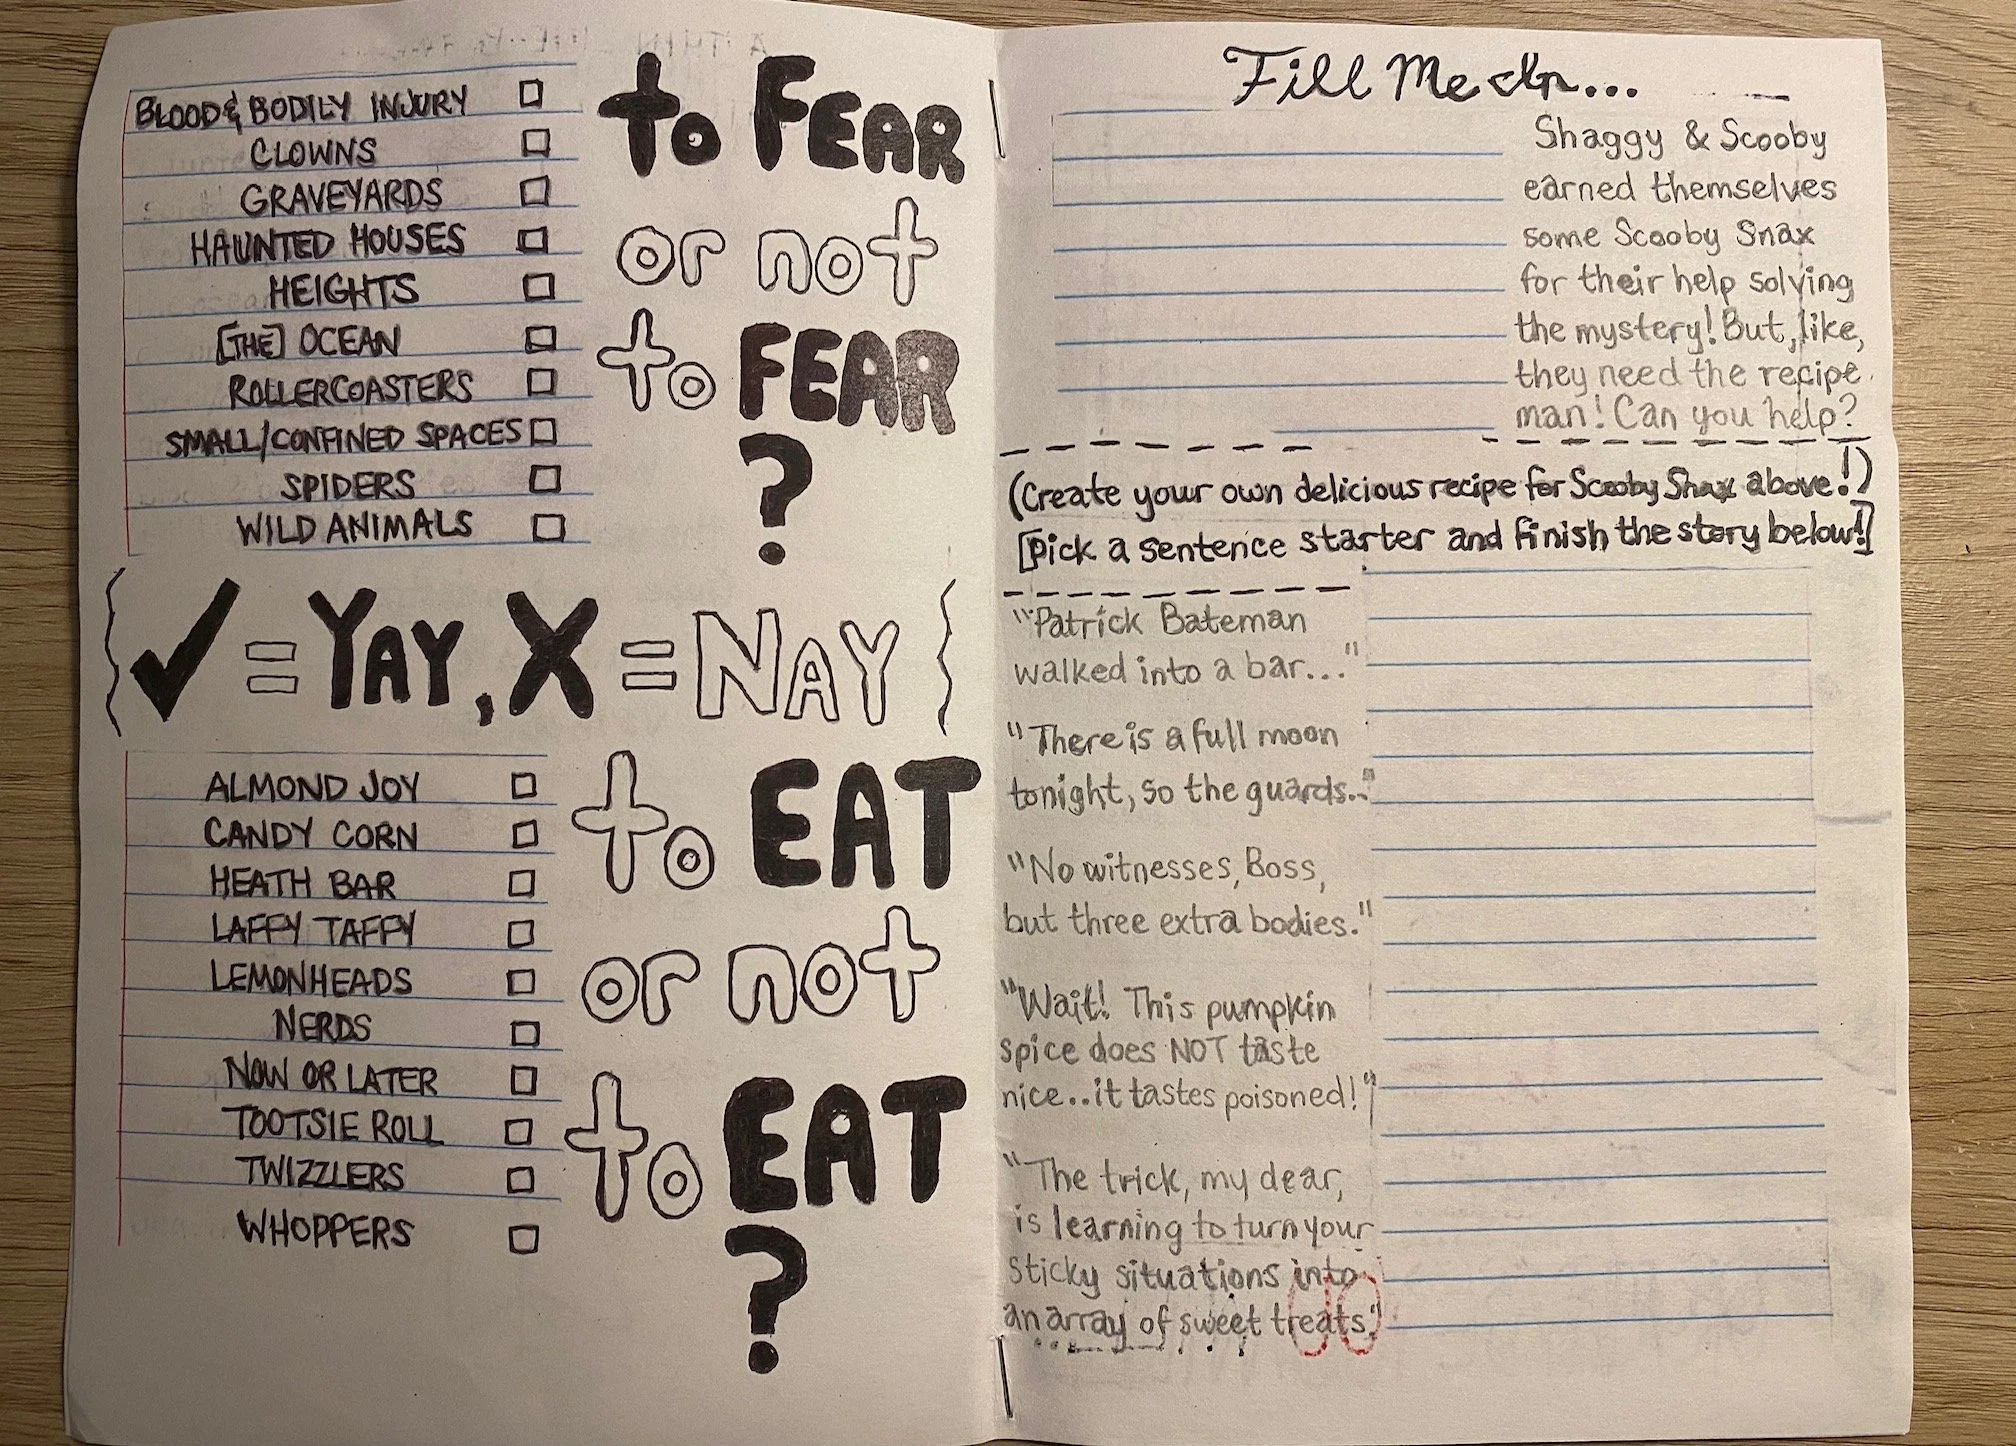 BLOOD & BODILY INJURY
CLOWNS
GRAVEYARDS
HAUNTED HOUSES
HEIGHTS
[THE] OCEAN
ROLLERCOASTERS
SMALL/CONFINED SPACES
SPIDERS
WILD ANIMALS
to FEAR
or not
to FEAR
?
✓ = YAY, X = NAY
ALMOND JOY
CANDY CORN
HEATH BAR
LAFFY TAFFY
LEMONHEADS
NERDS
NOW OR LATER
TOOTSIE ROLL
TWIZZLERS
WHOPPERS
to EAT
or not
to EAT
?
Fill Me In...
Shaggy & Scooby
earned themselves
some Scooby Snax
for their help solving
the mystery! But, like,
they need the recipe
man! Can you help?
(Create your own delicious recipe for Scooby Snax above!)
[Pick a sentence starter and finish the story below!]
"Patrick Bateman
walked into a bar..."
"There is a full moon
tonight, so the guards.."
"No witnesses, Boss,
but three extra bodies."
"Wait! This pumpkin
spice does NOT taste
nice..it tastes poisoned!"
"The trick, my dear,
is learning to turn your
sticky situations into
an array of sweet treats."